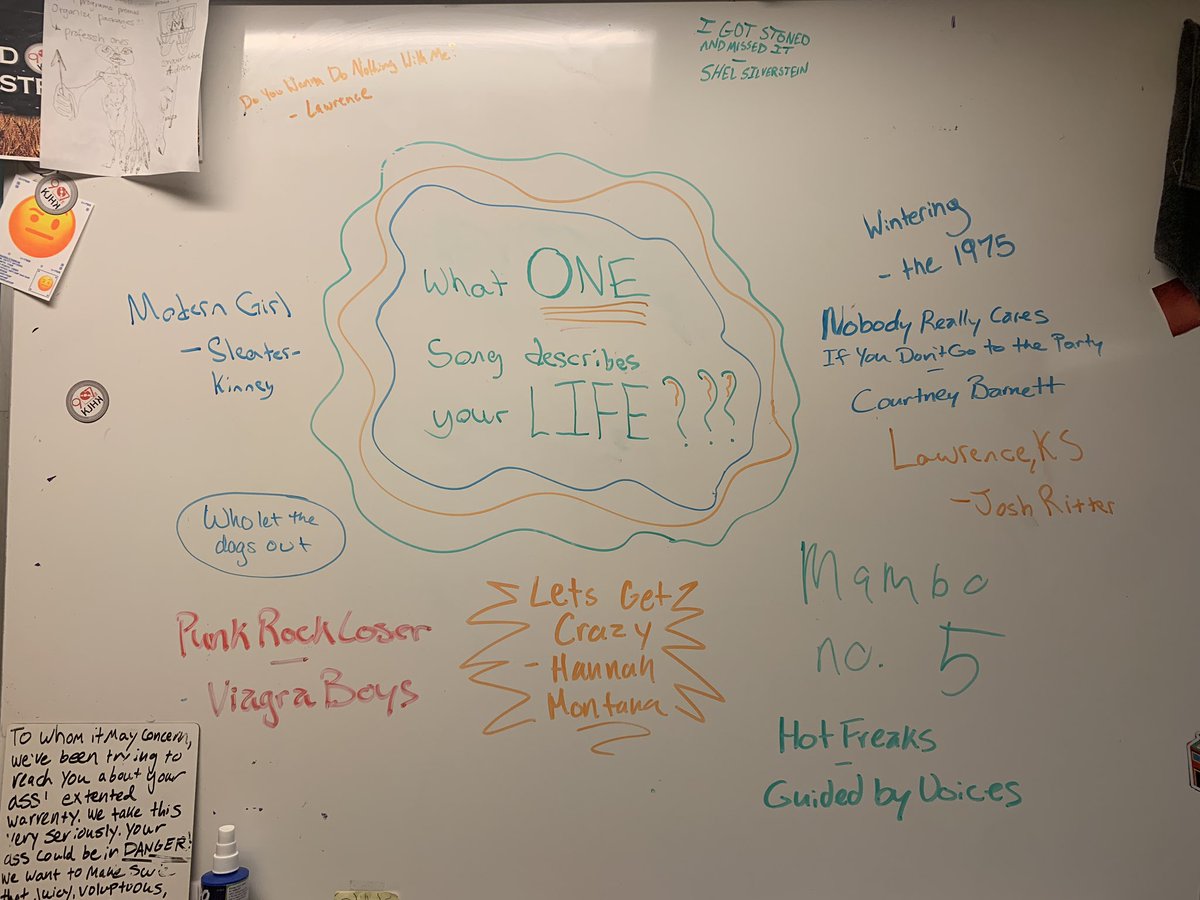 Organise packages:
professh ones
D
STE
KJHK
Do You Wanna Do Nothing With Me?
- Lawrence
I GOT STONED
AND MISSED IT
—
SHEL SILVERSTEIN
What ONE
Song describes
your LIFE???
Modern Girl
- Sleater-
Kinney
KJHK
Wintering
- the 1975
Nobody Really Cares
If You Don't Go to the Party
-
Courtney Barnett
Lawrence, KS
- Josh Ritter
Who let the
dogs out
Punk Rock Loser
-
Viagra Boys
Lets Get
Crazy
- Hannah
Montana
Mambo
no. 5
Hot Freaks
-
Guided by Voices
To whom it May concern,
we've been trying to
reach You about your
ass' extented
warrenty. We take this
very seriously. Your
ass could be in DANGER!
We want to make sure
that juicy, voluptuous,